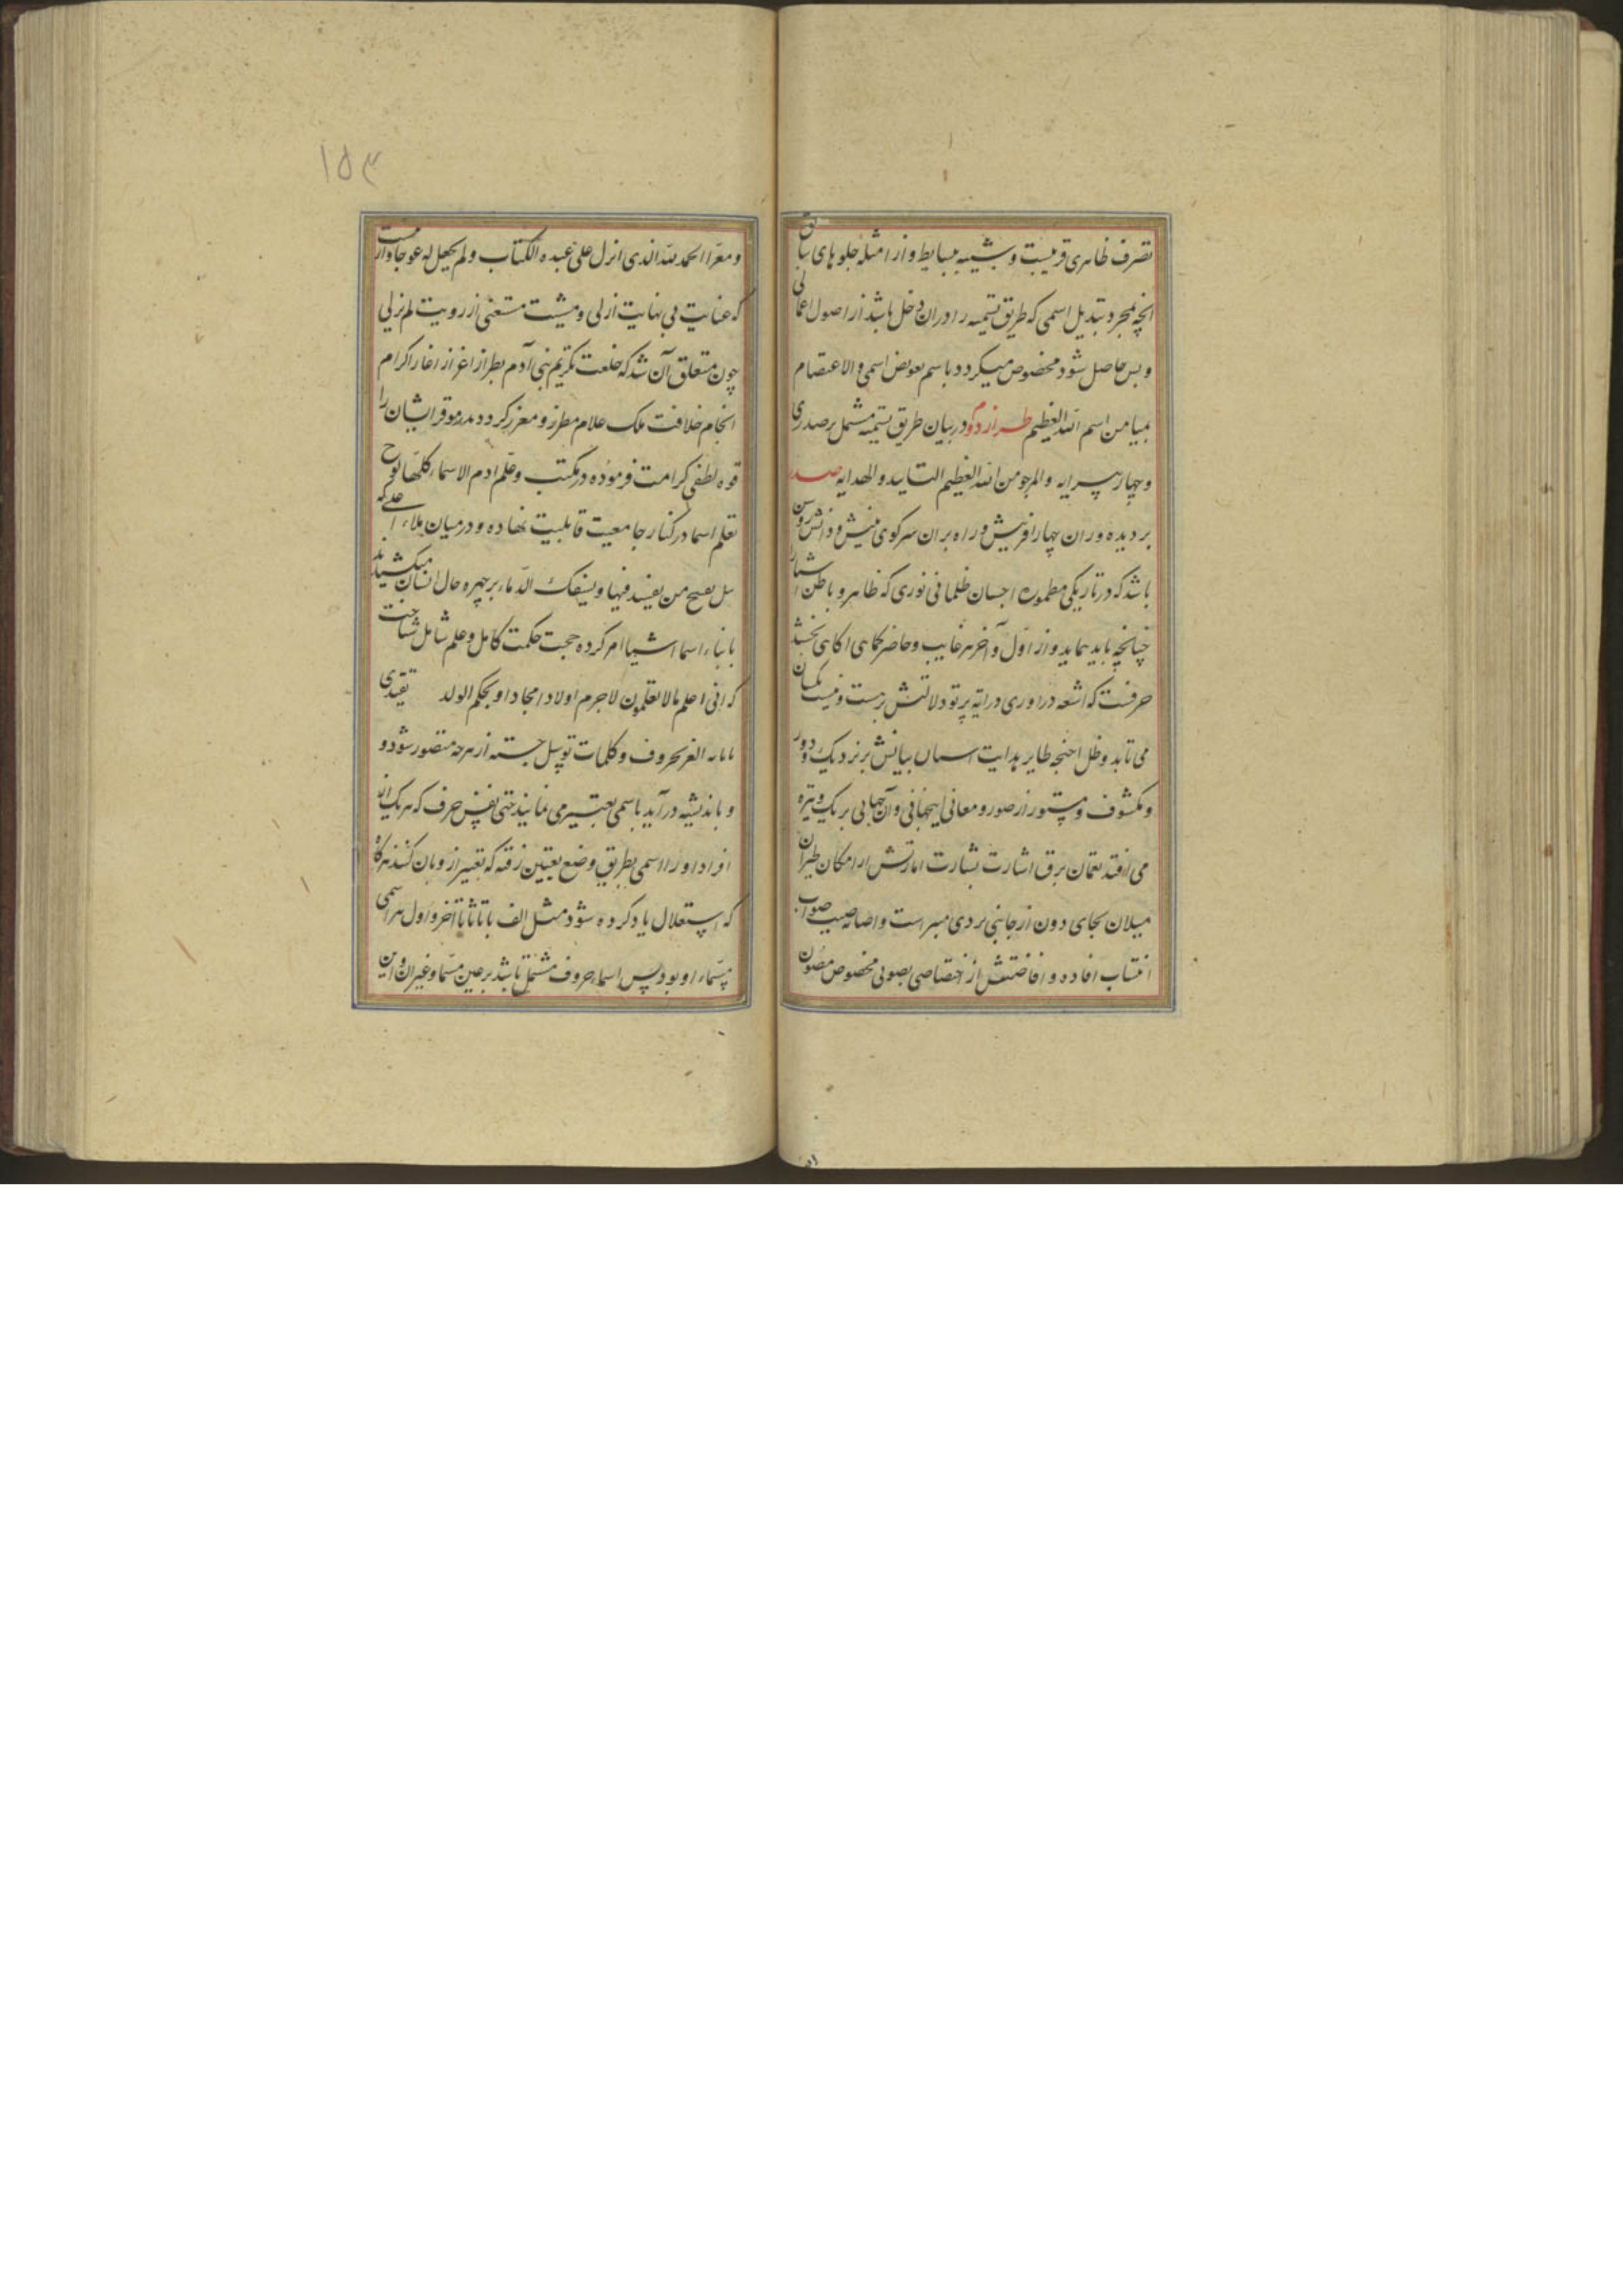 تصرف ظاهری قریبست و شبیه بسایط و از امثله جلوهای سابق
انچه بمجرد تبدیل اسمی که طریق تسمیه را در ان دخل باشد از اصول اعمالی
و بس حاصل شود مخصوص میگردد باسم تعویض اسمی والاعتصام
بمیامن اسم الله العظیم طراز دوم در بیان طریق تسمیه مشتمل بر صدری
و چهار پیرایه والمرجو من الله العظیم التایید والهدایه صدر
بر دیده وران چهار آفرینش و راه بران سرکوی بینش و دانش روشن
باشد که در تاریکی مطموره اجسان ظلمانی نوری که ظاهر و باطن اشیا را
چنانچه باید نماید و از اول و آخر هر غایب و حاضر کماهی اکاهی بخشد
حرفست که اشعه در اوری درایه پرتو دلالتش بر هست و نیست یکسان
می تابد و ظل اجنحه طایر هدایت اسمان بیانش بر نزدیک و دور
و مکشوف و مستور از صور و معانی اینجهانی و آنجهانی بر یک وتیره
می افتد لمعان برق اشارت بشارت امارتش از امکان طیران
میلان بجای دون از جانبی بردی مبراست و اصابه صیب صواب
انتساب افاده و افاضتش از اختصاصی بصوبی مخصوص مصون
۱۵۳
و معرا الحمد لله الذی انزل علی عبده الکتاب ولم یجعل له عوجا و از انست
که عنایت بی نهایت ازلی و مشیت مستغنی از رویت لم یزلی
چون متعلق آن شد که خلعت تکریم بنی آدم بطراز اعزاز اغاز اکرام
انجام خلافت ملک علام مطرز و معزز کردد پدر موقر ایشان را
قوه نطقی کرامت فرموده در مکتب وعلم ادم الاسماء کلها لوح
تعلم اسما در کنار جامعیت قابلیت نهاده و در میان ملاء اعلی که
نیل تقبیح من یفسد فیها ویسفک الدماء بر چهره حال انسان میکشیدند
بانباء اسما اشیا امر کرده حجت حکمت کامل و علم شامل ثابت ساخت
که انی اعلم ما لا تعلمون لاجرم اولاد امجاد او بحکم الولد یقتدی
بابائه الغر بحروف و کلمات توسل جسته از هرچه متصور شود و
و باندیشه درآید باسمی تعبیر می نمایند حتی نفس حرف که هر یک از
افراد او را اسمی بطریق وضع تعیین رفته که تعبیر از و بان کنند هرکاه
که استقلال یاد کرده شود مثل الف با تا ثا تا آخر و اول هر اسمی
مسماء او بود پس اسماء حروف مشتمل باشد بر عین مسما و غیر ان و این